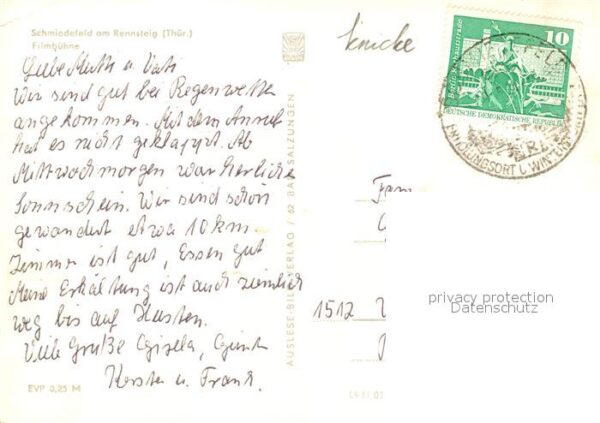 Schmiedefeld am Rennsteig (Thür.)
Filmbühne
Knicke
Liebe Mutti u. Vati
Wir sind gut bei Regenwetter
angekommen. Mit dem Anruf
hat es nicht geklappt. Ab
Mittwochmorgen war herrlicher
Sonnschein. Wir sind schon
gewandert etwa 10 km.
Zimmer ist gut, Essen gut
Meine Erkältung ist auch ziemlich
weg bis auf Husten.
Viele Grüße Gisela,
Kersten u. Frank.
EVP 0,25 M
AUSLESE-BILD-VERLAG / 62 BAD SALZUNGEN
Fam
1512
10
DEUTSCHE DEMOKRATISCHE REPUBLIK
ERHOLUNGSORT U. WINTER
privacy protection
Datenschutz